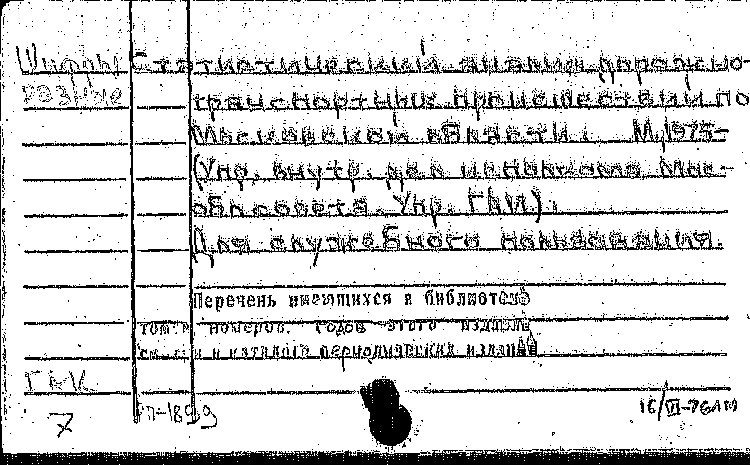 Шифры Статистический анализ дорожно-
разные транспортных происшествий по
Московской области. М., 1975-
(Упр. внутр. дел исполкома Мос-
облсовета. Упр. ГАИ).
Для служебного пользования.
Перечень имеющихся в библиотеке
томов, номеров, годов этого издания
см. в каталоге периодических изданий
7 П-1899 16/VI-76